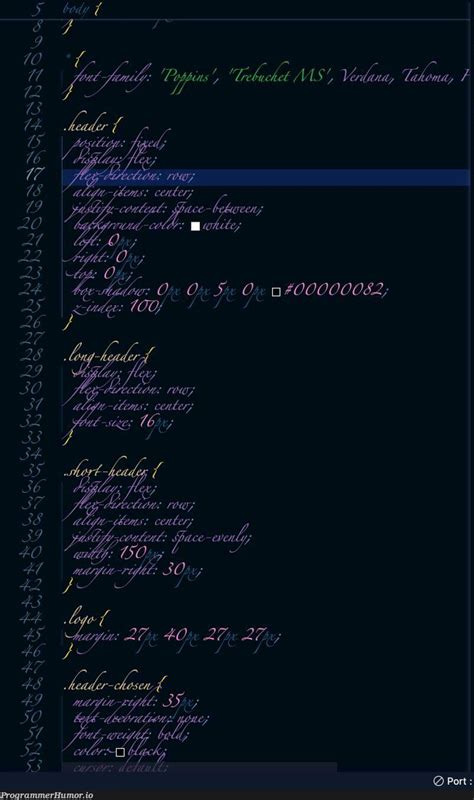 5 body {
8 }
9
10 * {
11 font-family: 'Poppins', 'Trebuchet MS', Verdana, Tahoma,
12 }
13
14 .header {
15 position: fixed;
16 display: flex;
17 flex-direction: row;
18 align-items: center;
19 justify-content: space-between;
20 background-color: white;
21 left: 0px;
22 right: 0px;
23 top: 0px;
24 box-shadow: 0px 0px 5px 0px #00000082;
25 z-index: 100;
26 }
27
28 .long-header {
29 display: flex;
30 flex-direction: row;
31 align-items: center;
32 font-size: 16px;
33 }
34
35 .short-header {
36 display: flex;
37 flex-direction: row;
38 align-items: center;
39 justify-content: space-evenly;
40 width: 150px;
41 margin-right: 30px;
42 }
43
44 .logo {
45 margin: 27px 40px 27px 27px;
46 }
47
48 .header-chosen {
49 margin-right: 35px;
50 text-decoration: none;
51 font-weight: bold;
52 color: black;
53 cursor: default;
Port :
ProgrammerHumor.io